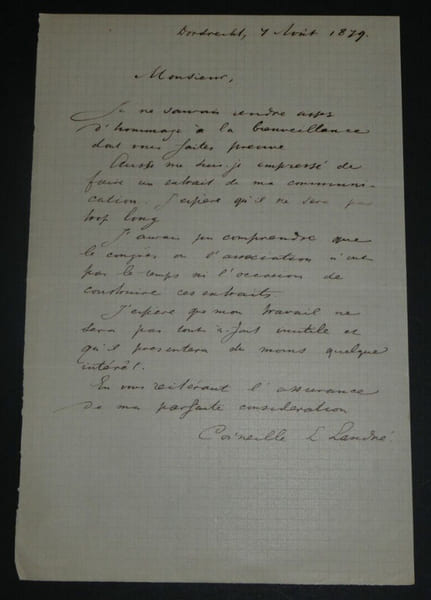 Dordrecht, 7 Août 1879.
Monsieur,
Je ne saurais rendre assez
d'hommage à la bienveillance
dont vous faites preuve
Aussi me suis-je empressé de
faire un extrait de ma communi-
cation. J'espère qu'il ne sera pas
trop long
J'aurais pu comprendre que
le congrès ou l'association n'ont
pas le temps ni l'occasion de
construire ces extraits
J'espère que mon travail ne
sera pas tout-à-fait inutile et
qu'il présentera du moins quelque
intérêt.
En vous réitérant l'assurance
de ma parfaite considération
Corneille L Landré